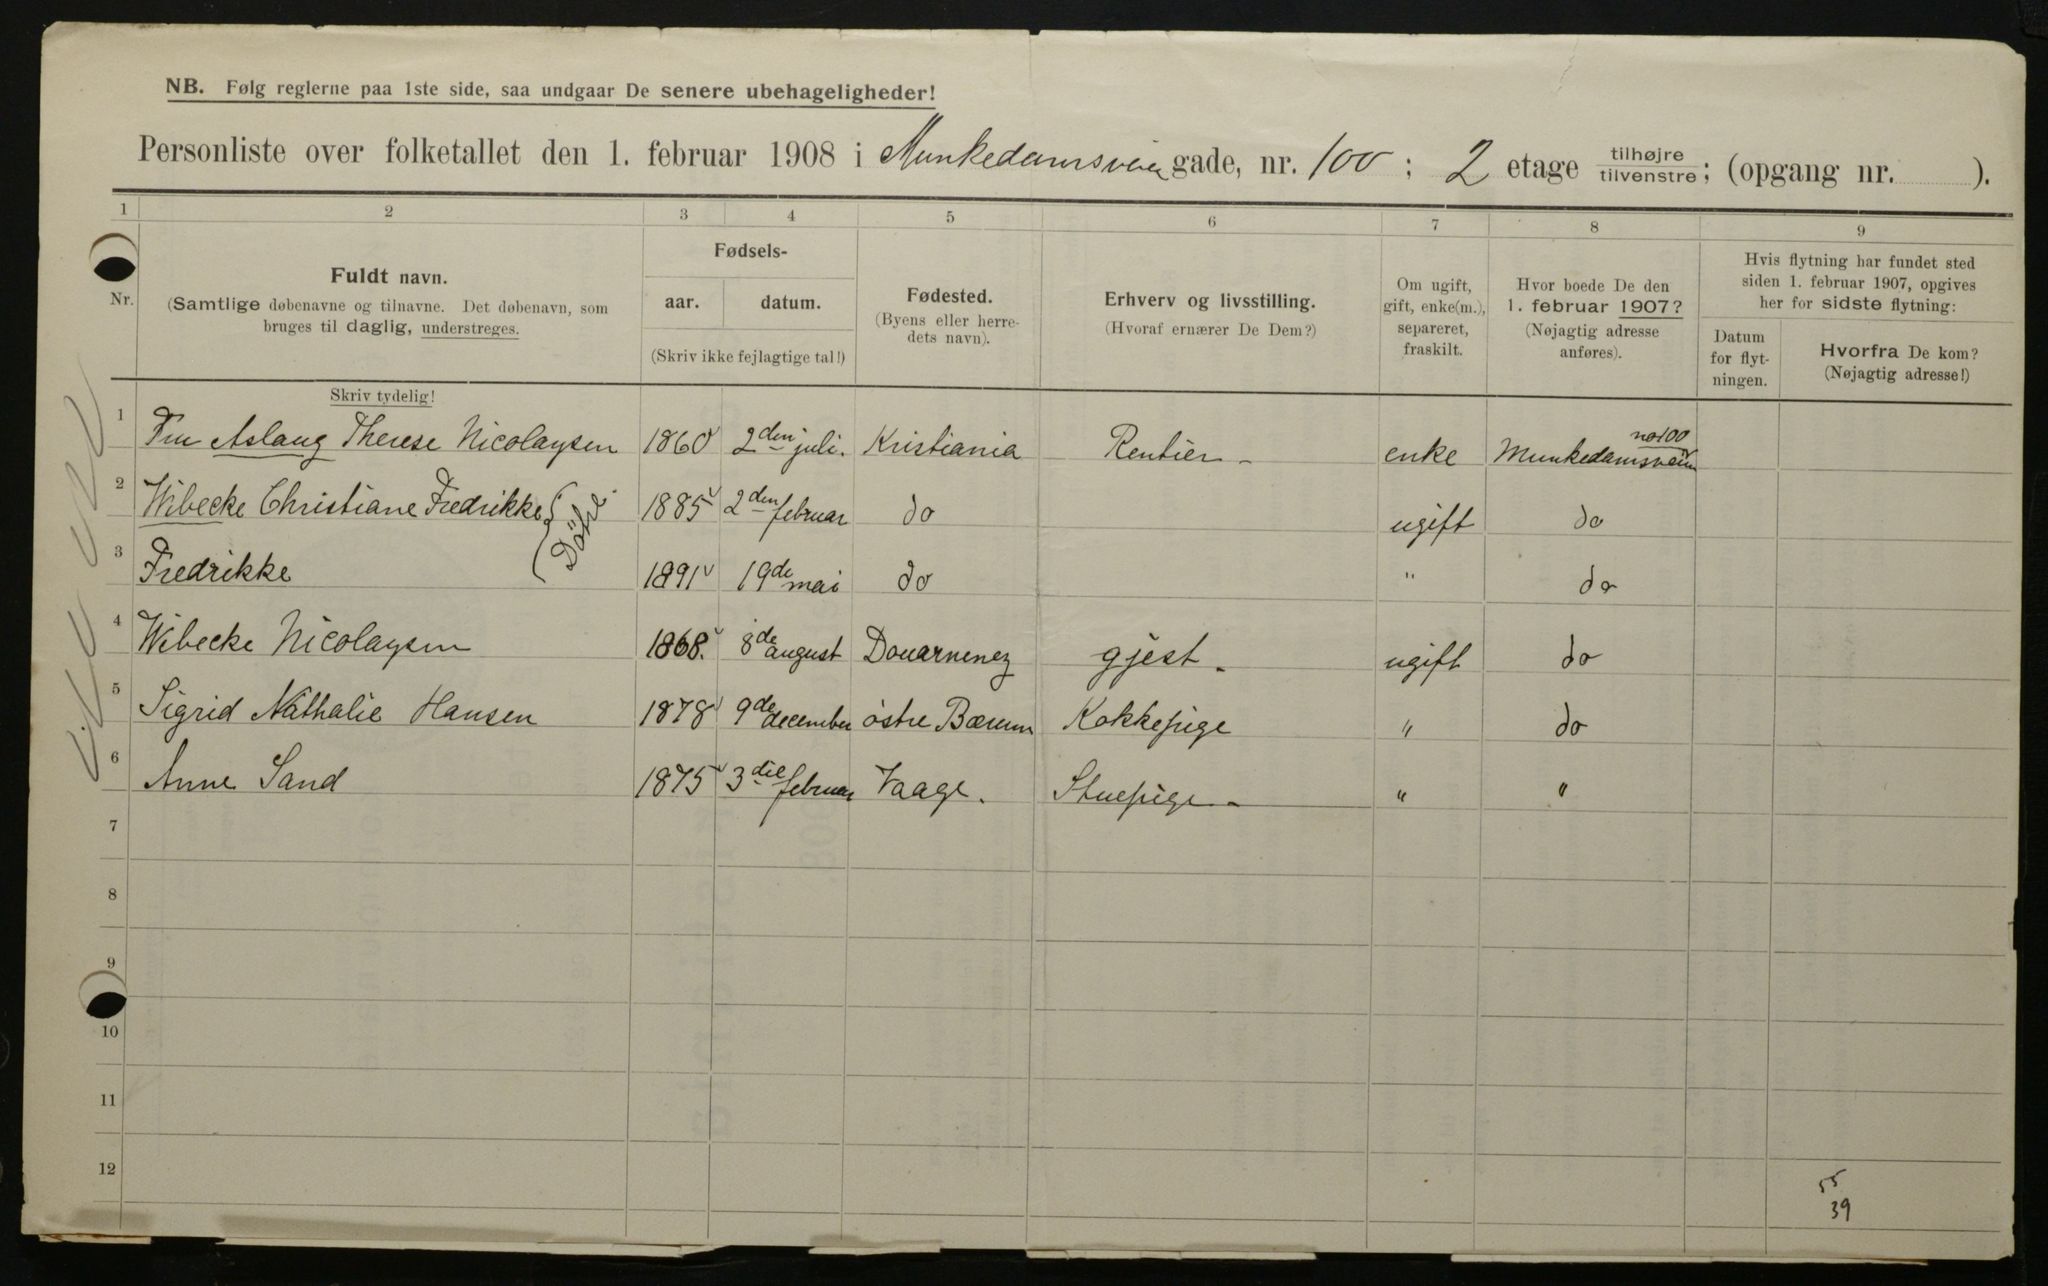 NB. Følg reglerne paa 1ste side, saa undgaar De senere ubehageligheder!
Personliste over folketallet den 1. februar 1908 i Munkedamsveien gade, nr. 100 ; 2 etage tilhøjre tilvenstre ; (opgang nr. ).
1 2 3 4 5 6 7 8 9
Nr.
Fuldt navn.
(Samtlige døbenavne og tilnavne. Det døbenavn, som
bruges til daglig, understreges.
Fødsels-
aar. datum.
(Skriv ikke fejlagtige tal!)
Fødested.
(Byens eller herre-
dets navn).
Erhverv og livsstilling.
(Hvoraf ernærer De Dem?)
Om ugift,
gift, enke(m.),
separeret,
fraskilt.
Hvor boede De den
1. februar 1907?
(Nøjagtig adresse
anføres).
Hvis flytning har fundet sted
siden 1. februar 1907, opgives
her for sidste flytning:
Datum
for flyt-
ningen.
Hvorfra De kom?
(Nøjagtig adresse!)
Skriv tydelig!
1 Fru Aslaug Therese Nicolaysen 1860 2den juli. Kristiania Rentier enke Munkedamsveien no 100
2 Wibecke Christiane Fredrikke 1885 2den februar do ugift do
Døtre
3 Fredrikke 1891 19de mai do " do
4 Wibecke Nicolaysen 1868. 8de august Douarnenez gjest. ugift do
5 Sigrid Nathalie Hansen 1878 9de december østre Bærum Kokkepige " do
6 Anne Sand 1875 3die februar Vaage. Stuepige " "
7
8
9
10
11
12
55
39